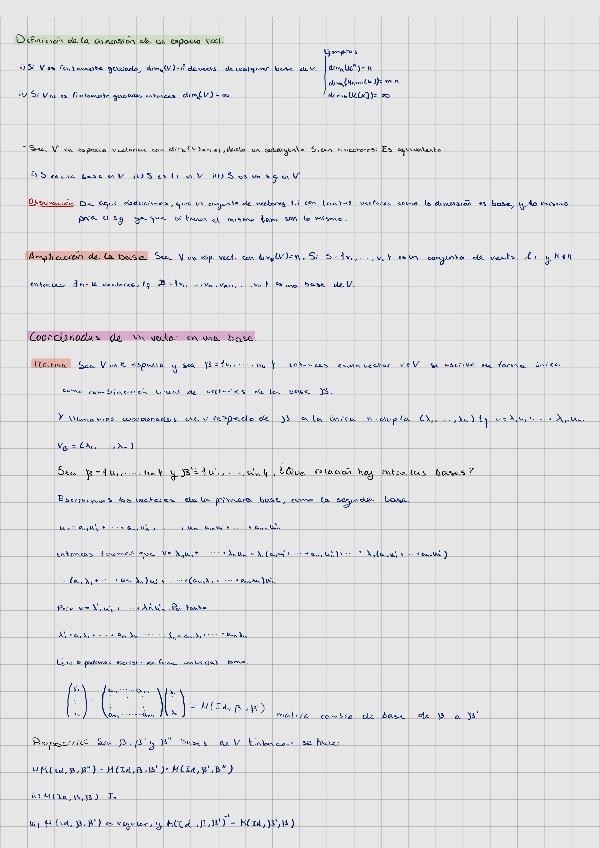 Definición de la dimensión de un espacio vect.
Ejemplos
i) Si V es finitamente generado, dim(V) = nº de vects de cualquier base de V.
dim(Kⁿ) = n
dim(M (K)) = m·n
dim(K[x]) = ∞
ii) Si V no es finitamente generado entonces dim(V) = ∞
- Sea V un espacio vectorial con dim(V) = n, dado un subconjunto S con n vectores. Es equivalente
i) S es una base de V ii) S es l.i en V iii) S es un s.g de V
Observación De aquí deducimos, que un conjunto de vectores l.i con tantos vectores como la dimensión es base, y lo mismo
para el sg ya que si tienen el mismo tam son lo mismo.
Ampliación de la base Sea V un esp. vect. con dim(V)=n. Si S = {v₁, ..., v } es un conjunto de vects l.i y k<n
entonces ∃ n-k vectores, tq B = {v₁, ..., v } es una base de V.
Coordenadas de un vector en una base
Sea V un K espacio y sea β = {u₁, ..., uₙ} entonces cada vector v∈V se escribe de forma única
como combinación lineal de vectores de la base β.
Y llamamos coordenadas de v respecto de β a la única n-dupla (λ₁, ..., λₙ) tq v = λ₁u₁ + ... + λₙuₙ
v_β = (λ₁, ..., λₙ)
Sea β = {u₁, ..., uₙ} y β' = {u'₁, ..., u'ₙ}. ¿Que relación hay entre las bases?
Escribimos los vectores de la primera base, como la segunda base
entonces tenemos que v = λ₁u₁ + ... + λₙuₙ = λ₁(a₁₁u'₁ + ... + aₙ₁u'ₙ) + ... + λₙ(a₁ₙu'₁ + ... + aₙₙu'ₙ)
= (a₁₁λ₁ + ... + a₁ₙλₙ)u'₁ + ... + (aₙ₁λ₁ + ... + aₙₙλₙ)u'ₙ
Pero v = λ'₁u'₁ + ... + λ'ₙu'ₙ. Por tanto
Esto lo podemos escribir de forma matricial como
= M(Id, β, β') matriz cambio de base de β a β'
Proposición: Sea β, β' y β'' bases de V. Entonces se tiene:
i) M(Id, β, β'') = M(Id, β, β') · M(Id, β', β'')
ii) M(Id, β, β) = Iₙ
iii) M(Id, β, β') es regular, y M(Id, β, β')⁻¹ = M(Id, β', β)